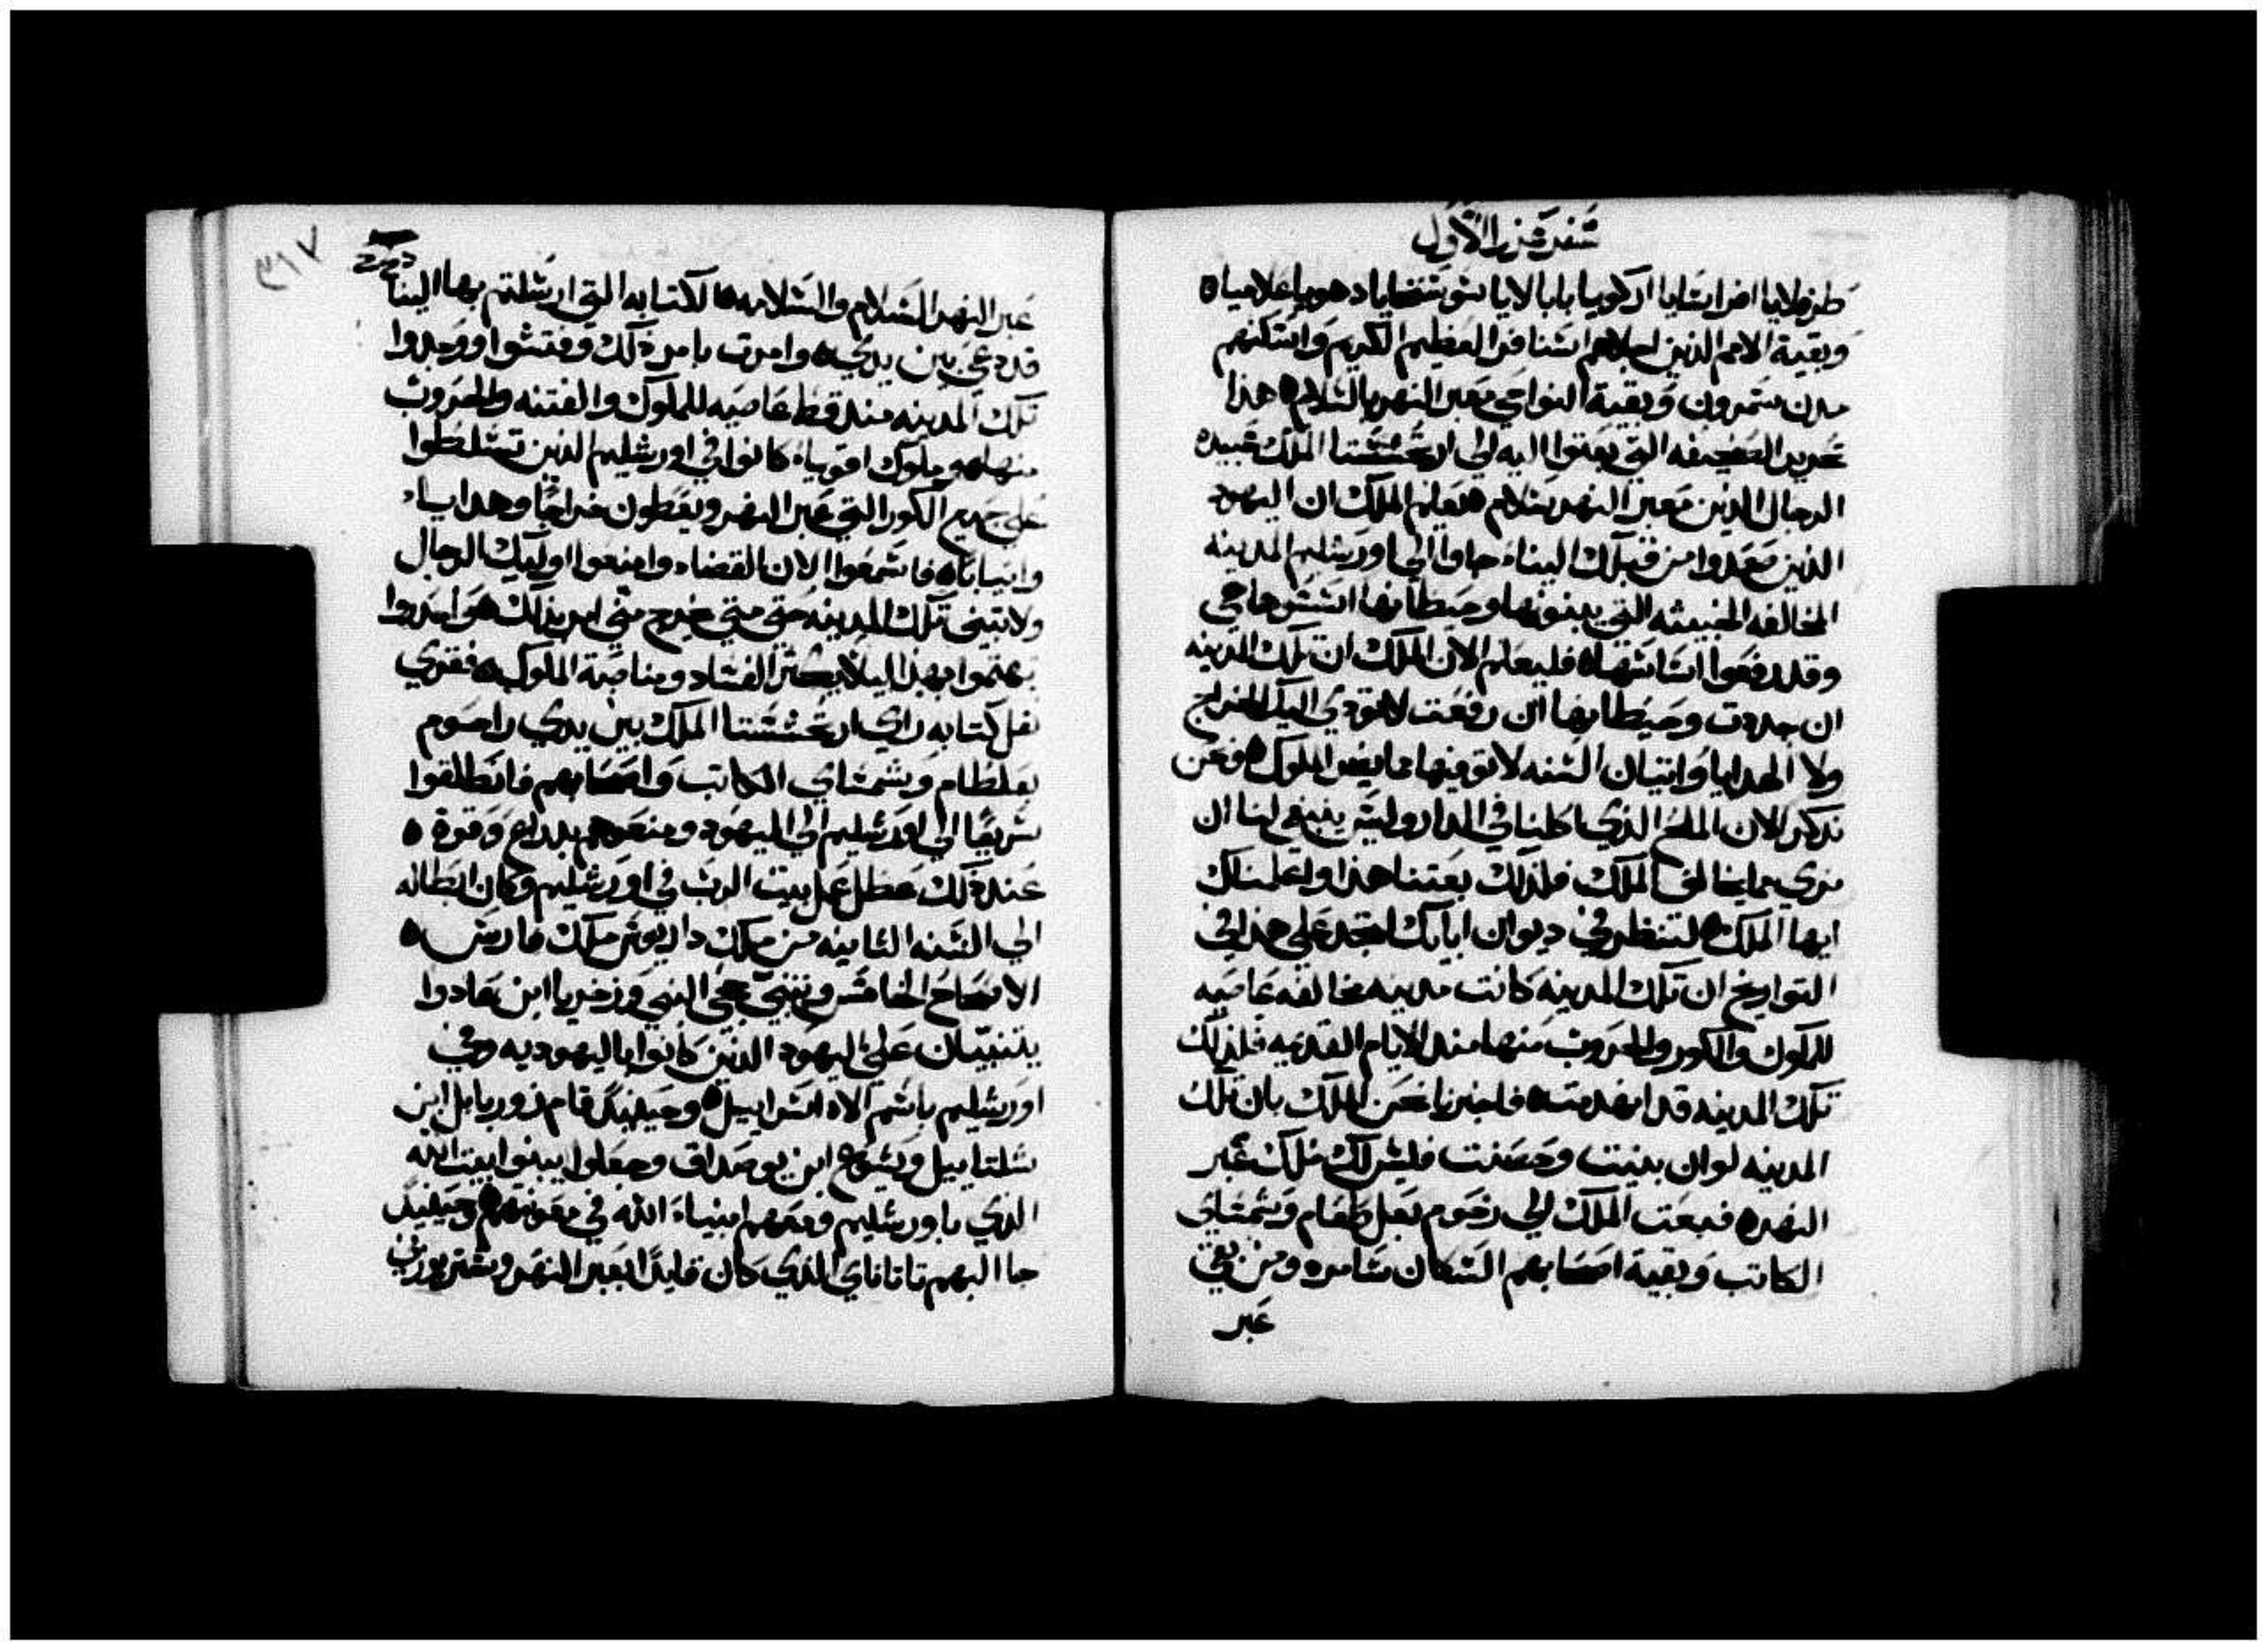 سفر عزرا الاول
طرفلايا افرايسَايا اركويا بابالايا شوشنخايا دهويا علاميا ه
وبقية الامم الذين اجلاهم اسَنافر العظيم الكريم واسَكنهم
مدن سَمرون وبقية النواحي معبر النهر بالسَلام ه هذا
تحرير الصَحيفه التي بعتوا اليه الي ارتحششتا الملك عبيده
الرجال الدين معبر النهر بسَلام ه ليعلم الملك ان اليهود
الذين صَعدوا من قبلك الينا جاوا الي اورشليم المدينه
المخالفه الخبيثه التي يبنونها وحيطانها اسَسَوها حي
وقد رفعوا اسَاسَها ه فليعلم الان الملك ان تلك المدينه
ان جددت وحيطانها ان رفعت لاتودي اليك الخراج
ولا الهدايا واتيان السَنه لاتوفيها مما يغص الملوك ه فنحن
نذكر الان الملح الذي اكلنا في الدار وليسَ ينبغي لنا ان
نري مايخالف الملك فلذلك بعتنا هذا واعلمناك
ايها الملك ه لتنظر في ديوان اباياك فتجد علي هذا في
التواريخ ان تلك المدينه كانت مدينه مخالفه عاصيه
للملوك والكور والحروب منها مند الايام القديمه فلذلك
تلك المدينه قد انهدمت ه فاخبرنا نحن الملك بان تلك
المدينه لو ان بنيت وحصنت فليسَ لك ملك عبر
النهر ه فبعت الملك الي رحوم بعل طعام وشمشاي
الكاتب وبقية اصحابهم السَكان سَامره ومن بقي
عبر
٣١٧
عبر النهر السَلام والسَلامه ه الكتابه التي ارسَلتم بها الينا
قد دعي بين يدي ه وامرت بامر ذلك وفتشوا ووجدوا
تلك المدينه مند قط عاصيه للملوك والفتنه والحروب
منها ه وملوك اقويا كانوا في اورشليم الذين تسَلطوا
علي جميع الكور التي عبر النهر ويعطون خراجًا وهدايا
واتيانا ه فاسَمعوا الان القضا وامنعوا اوليك الرجال
ولاتبني تلك المدينه حتي متي خرج مني امر بذلك ه واحذروا
تهتموا بهذا ليلا يكثر الفسَاد ومناصبة الملوك ه فقري
نقل كتابه راي ارتحششتا الملك بين يدي راحوم
بعلطام وشمشاي الكاتب واصحابهم فانطلقوا
سَريعًا الي اورشليم الي اليهود ومنعوهم بدراع وقوة ه
عند ذلك عطل عمل بيت الرب في اورشليم وكان ابطاله
الي السَنه الثانيه من ملك داريوسَ ملك فارسَ ه
الاصحاح الخامسَ وتنبي حجي النبي وزخريا ابن عادوا
يتنبيان علي اليهود الذين كانوا باليهوديه وفي
اورشليم باسَم الاه اسَراييل ه وحينيذ قام زوربابل ابن
شلتاييل ويشوع ابن يوصداق وجعلوا يبنوا بيت الله
الذي باورشليم ومعهم انبياء الله في معونتهم ه وحينيذ
جا اليهم تاتاناي الذي كان قايدًا لعبر النهر وشتربوزني